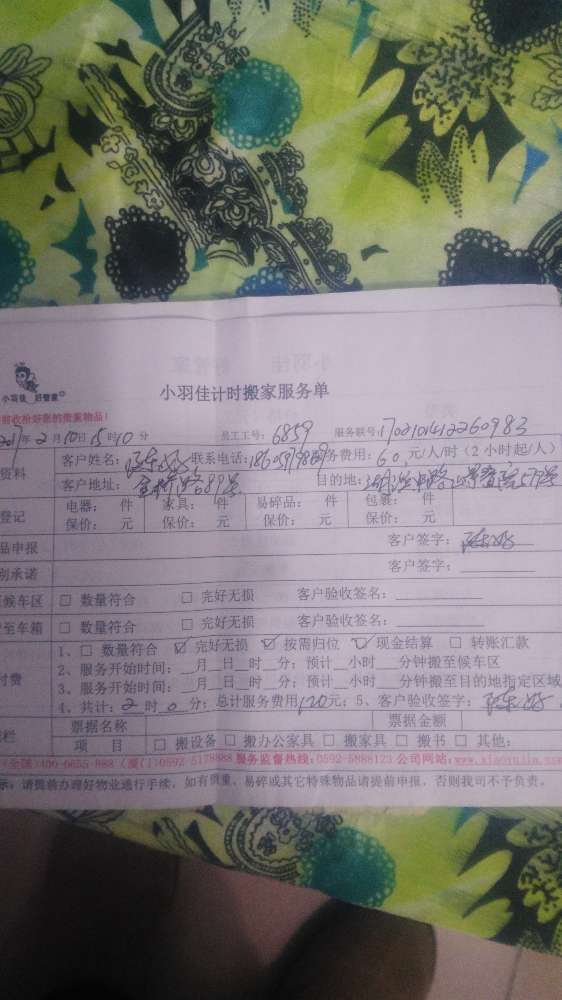 小羽佳 好管家
小羽佳计时搬家服务单
前收检好您的贵重物品!
年2月10日15时10分 员工工号: 6859 服务联号:
资料 客户姓名: 联系电话: 服务费用: 60 元/人/时(2小时起/人)
客户地址: 89号 目的地:
登记 电器: 件 家具: 件 易碎品: 件 包裹: 件
保价: 元 保价: 元 保价: 元 保价: 元
品申报 客户签字:
别承诺 客户签字:
候车区 □ 数量符合 □ 完好无损 客户验收签名:
至车箱 □ 数量符合 □ 完好无损 客户验收签名:
付费 1、□ 数量符合 ☑ 完好无损 ☑ 按需归位 ☑ 现金结算 □ 转账汇款
2、服务开始时间: 月 日 时 分; 预计 小时 分钟搬至候车区
3、服务开始时间: 月 日 时 分; 预计 小时 分钟搬至目的地指定区域
4、共计: 2 时 0 分; 总计服务费用 120 元; 5、客户验收签字:
栏 票据名称 票据金额
项 目 □ 搬设备 □ 搬办公家具 □ 搬家具 □ 搬书 □ 其他:
(全国)400-6655-888 (厦门)0592-5178888 服务监督热线:0592-5888123 公司网站:
示: 请提前办理好物业通行手续, 如有贵重、易碎或其它特殊物品请提前申报, 否则我司不予负责。